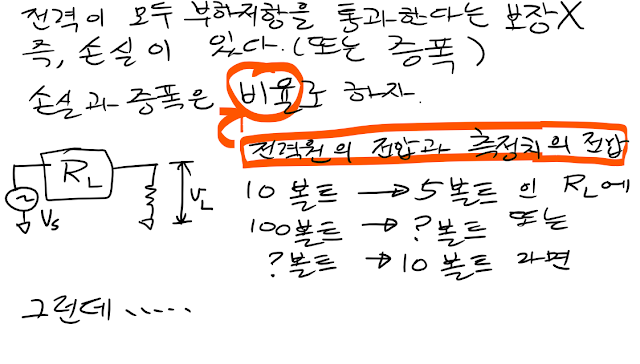 전력이 모두 부하저항을 통과한다는 보장X
즉, 손실이 있다.(또는 증폭)
손실과 증폭은 비율로 하자.
전력원의 전압과 측정치의 전압
RL
VL
Vs
10볼트 → 5볼트인 RL에
100볼트 → ?볼트 또는
?볼트 → 10볼트 라면
그런데......